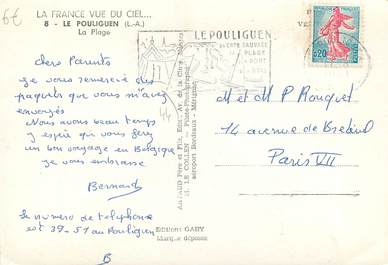 6€
LA FRANCE VUE DU CIEL...
8 - LE POULIGUEN (L.-A.)
La Plage
LE POULIGUEN
SA COTE SAUVAGE
PLAGE
PORT
0,20
Chers Parents
Je vous remercie des
paquets que vous m'avez
envoyés
Nous avons beau temps
J'espère que vous ferez
un bon voyage en Belgique
je vous embrasse
Bernard
Le numero de telephone
est 39-51 au Pouliguen
B
ARTAUD Père et Fils, Edit., Av. de la Close
M. LE COLLEN - Pilote-Photographe
aéroport Bordeaux - Mérignac
Editions GABY
Marque déposée
M et Mme P Rouquet
14 avenue de Breteuil
Paris VII